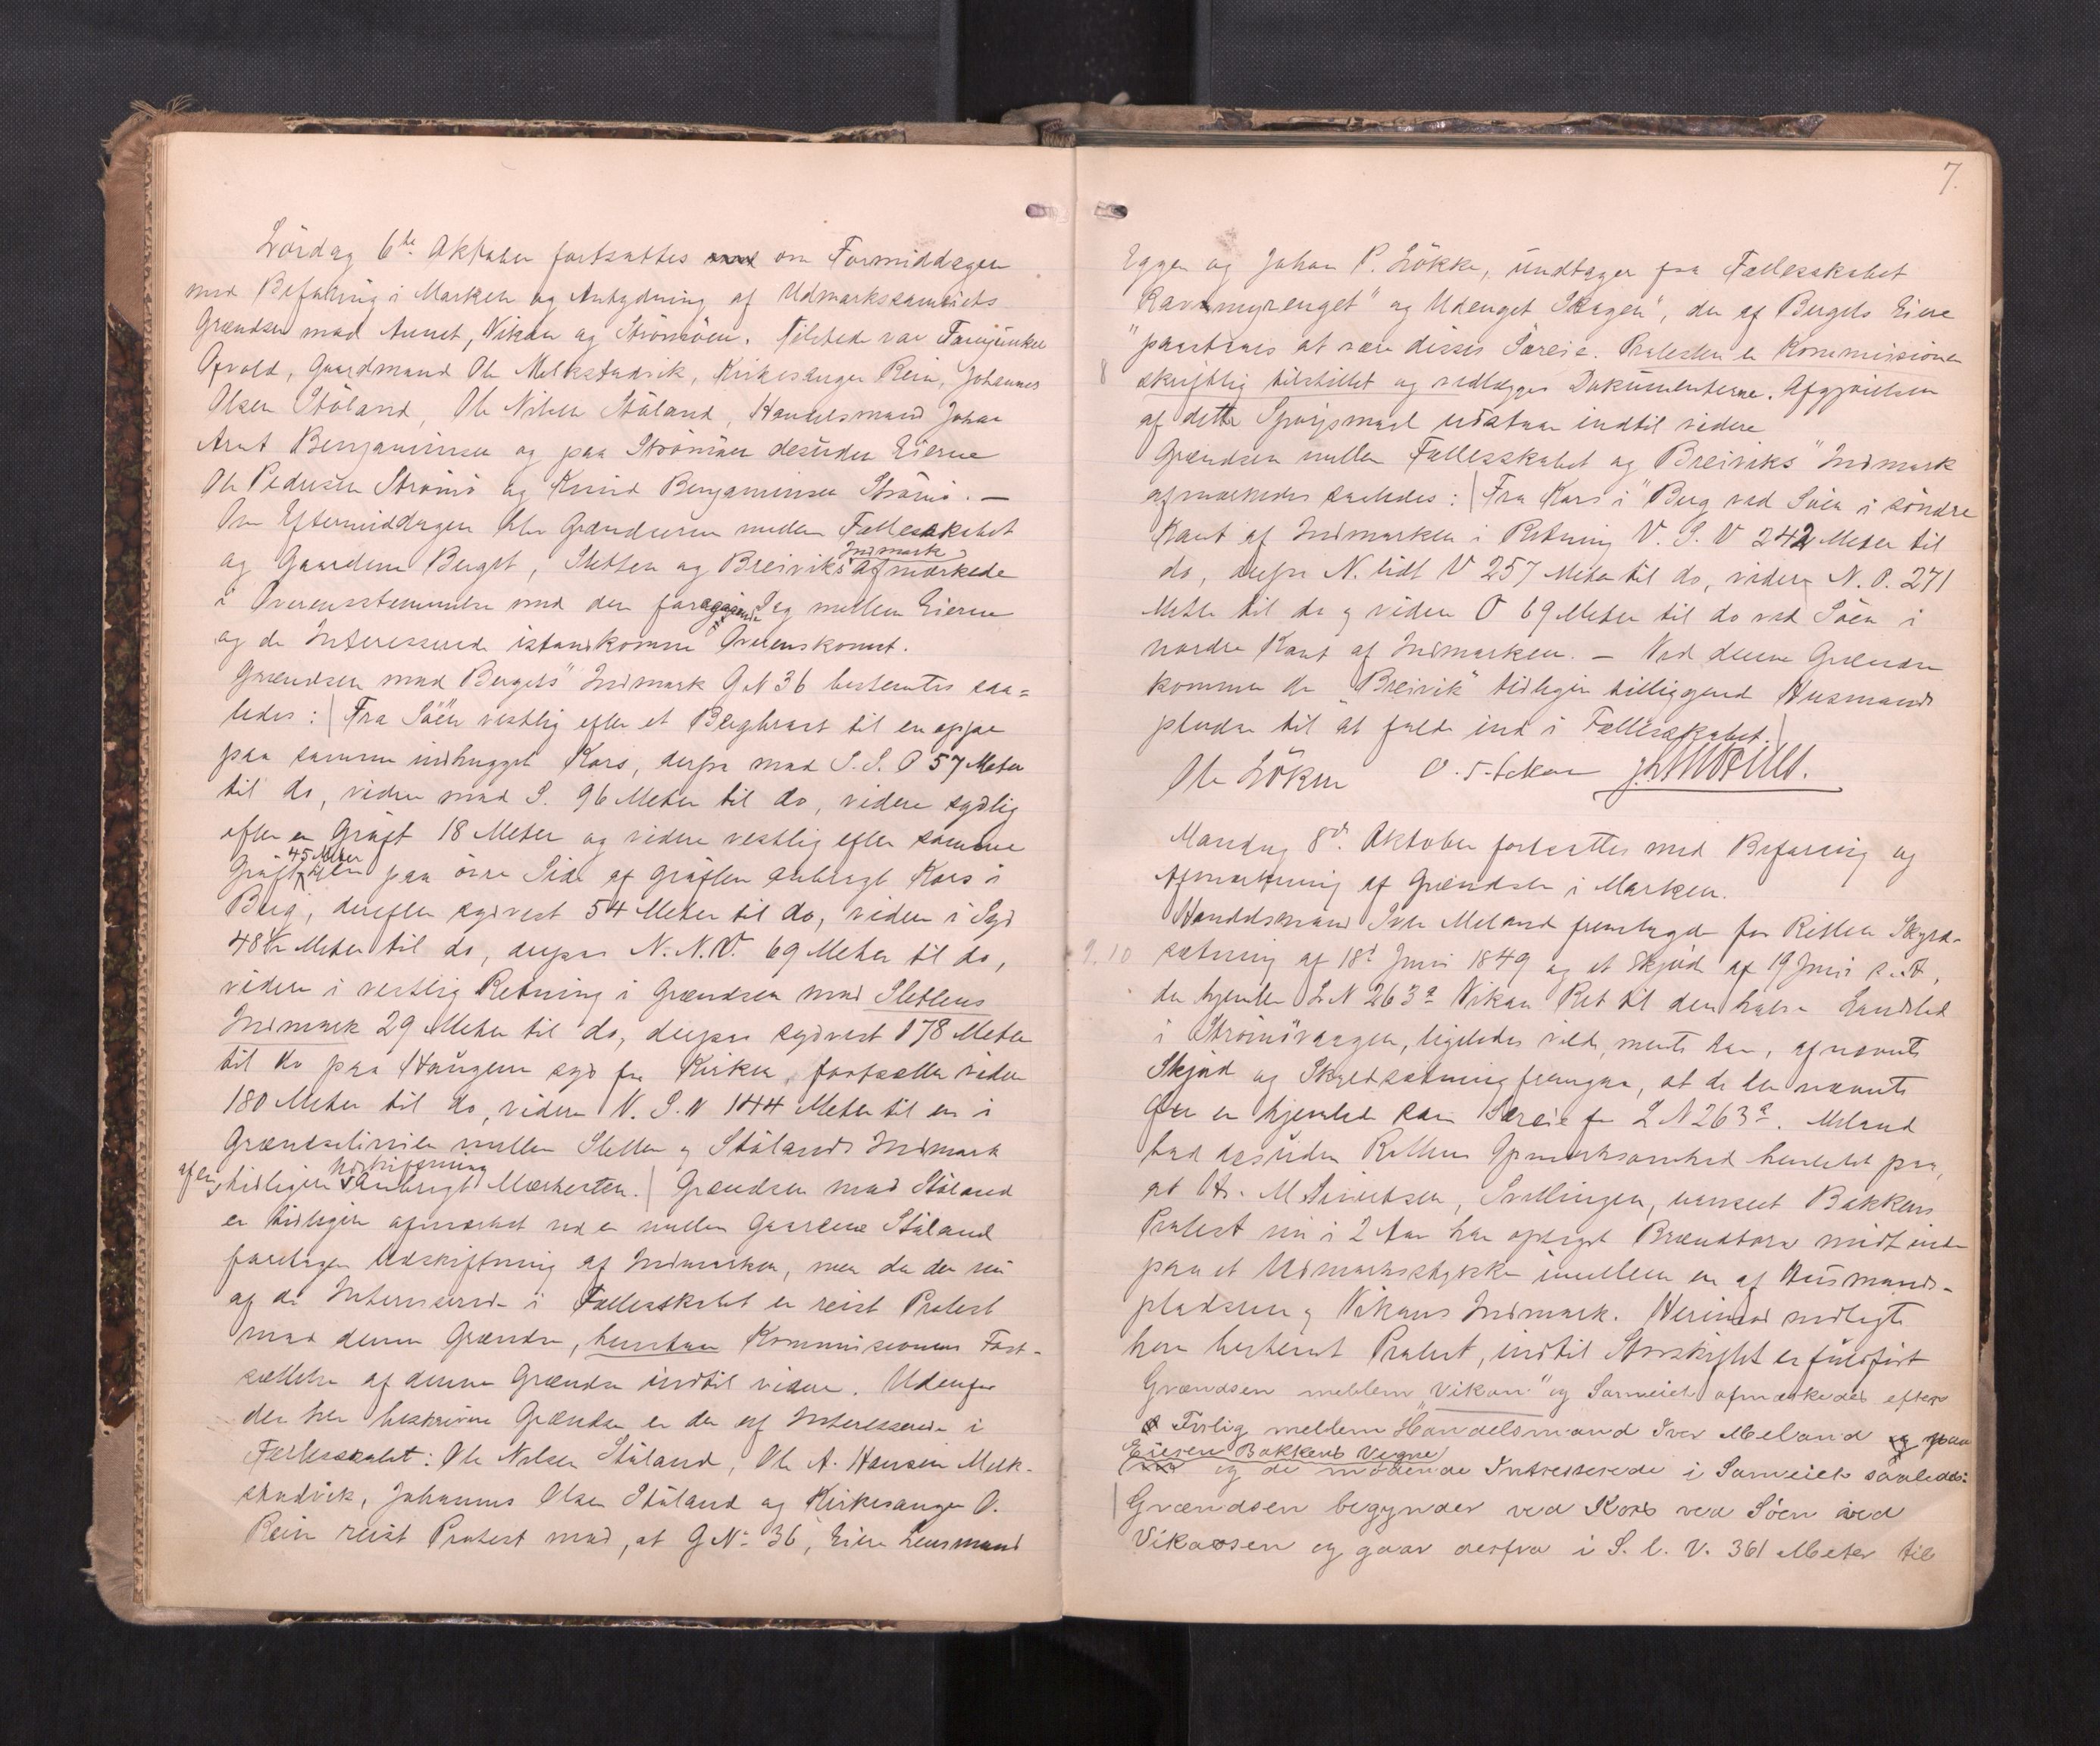 Lördag 6te Oktober fortsattes med om Formiddagen
med Befaring i Marken og Antydning af Udmarkssameiets
Grændser mod Aunet, Vikan og Strömöen. Tilstede var
Ofvold, Gaardmand Ole Melkstadvik, Kirkesanger Rein, Johannes
Olsen Stöland, Ole Nilsen Stöland, Handelsmand Johan
Arnt Benjaminsen og paa Strömöen desuden Eierne
Ole Pedersen Strömö og Knud Benjaminsen Strömö. —
Om Eftermiddagen blev Grændserne mellem Fællesskabet
og Gaardene Berget, Sletten og Breiviks Indmark afmærkede
i Overensstemmelse med den foregaaende Dag mellem Eierne
og de Interesserede istandkomne Overenskomst.
Grændsen mod Bergets" Indmark GN 36 bestemtes saa=
ledes: | Fra Söen vestlig efter et Bergbrast til en oppe
paa samme indhugget Kors, derfra mod S.S.O 57 Meter
til do, videre mod S. 96 Meter til do, videre sydlig
efter en Gröft 18 Meter og videre vestlig efter samme
Gröft 45 Meter til en paa övre Side af Gröften anbragt Kors i
Berg, derefter sydvest 54 Meter til do, videre i Syd
48 Meter til do, derfra N.N.V. 69 Meter til do,
videre i vestlig Retning i Grændsen mod Slettens
Indmark 29 Meter til do, derfra sydvest 178 Meter
til do paa Haugene syd for Kirken, fortsætter videre
180 Meter til do, videre V.S.V 144 Meter til en i
Grændselinien mellem Sletten og Stölands Indmark
af en tidligere Udskiftning anbragt Mærkesten. | Grændsen mod Stöland
er tidligere afmærket ved en mellem Gaardene Stöland
foretagen Udskiftning af Indmarken, men da der nu
af de Interesserede i Fællesskabet er reist Protest
mod denne Grændse, henstaar Kommissionens Fast-
sættelse af denne Grændse indtil videre. Udenfor
den her beskrevne Grændse er der af Interesserede i
Fællesskabet: Ole Nilsen Stöland, Ole A. Hansen Melk-
stadvik, Johannes Olsen Stöland og Kirkesanger O.
Rein reist Protest mod, at GN: 36, Eier Lensmand
7.
Eggen og Johan P. Lökke, undtager fra Fællesskabet
Ravnmyrenget" og Udenget Skagen", der af Bergets Eiere
paastaaes at være disses Særeie. Protesten er Kommissionen
8 skriftlig tilstillet og vedlægges Dokumenterne. Afgjörelsen
af dette Spörgsmaal udstaar indtil videre
Grændsen mellem Fællesskabet og Breiviks" Indmark
afmærkedes saaledes: | Fra Kors i Berg ved Söen i söndre
Kant af Indmarken i Retning V.S.V 242 Meter til
do, derfra N. lidt V 257 Meter til do, videre N.O. 271
Meter til do og videre O 69 Meter til do ved Söen i
nordre Kant af Indmarken. — Ved denne Grændse
kommer de "Breivik" tidligere tilliggende Husmands
pladse til at falde ind i Fællesskabet. |
Ole Löken
Mandag 8de Oktober fortsattes med Befaring og
Afmærkning af Grændser i Marken.
Handelsmand Iver Meland fremlagde for Retten Skyld-
9.10 sætning af 18de Juni 1849 og et Skjöde af 19 Juni s. A.,
der hjemler LN 263a Vikan Ret til den halve Landslod
i Strömövaagen, ligeledes vilde, mente han, af nævnte
Skjöde og Skyldsætning fremgaa, at de to nævnte
er hjemlet som Særeie for LN 263a. Meland
bad desuden Rettens Opmerksomhed henledet paa,
at Hr. M Sivertsen, Svellingen, uanseet Bakkens
Protest nu i 2 Aar har optaget Brændtorv midt inde
paa et Udmarksstykke imellem en af Husmands-
pladsene og Vikans Indmark. Herimod nedlagte
han bestemt Protest, indtil Storskiftet er fuldfört
Grændsen mellem "Vikan" og Sameiet afmærkedes efter
Forlig mellem Handelsmand Iver Meland og paa
Eieren Bakkens Vegne og de mödende Interesserede i Sameiet saaledes:
| Grændsen begynder ved Kors ved Söen ved
Vikaosen og gaar derfra i S. l. V. 361 Meter til